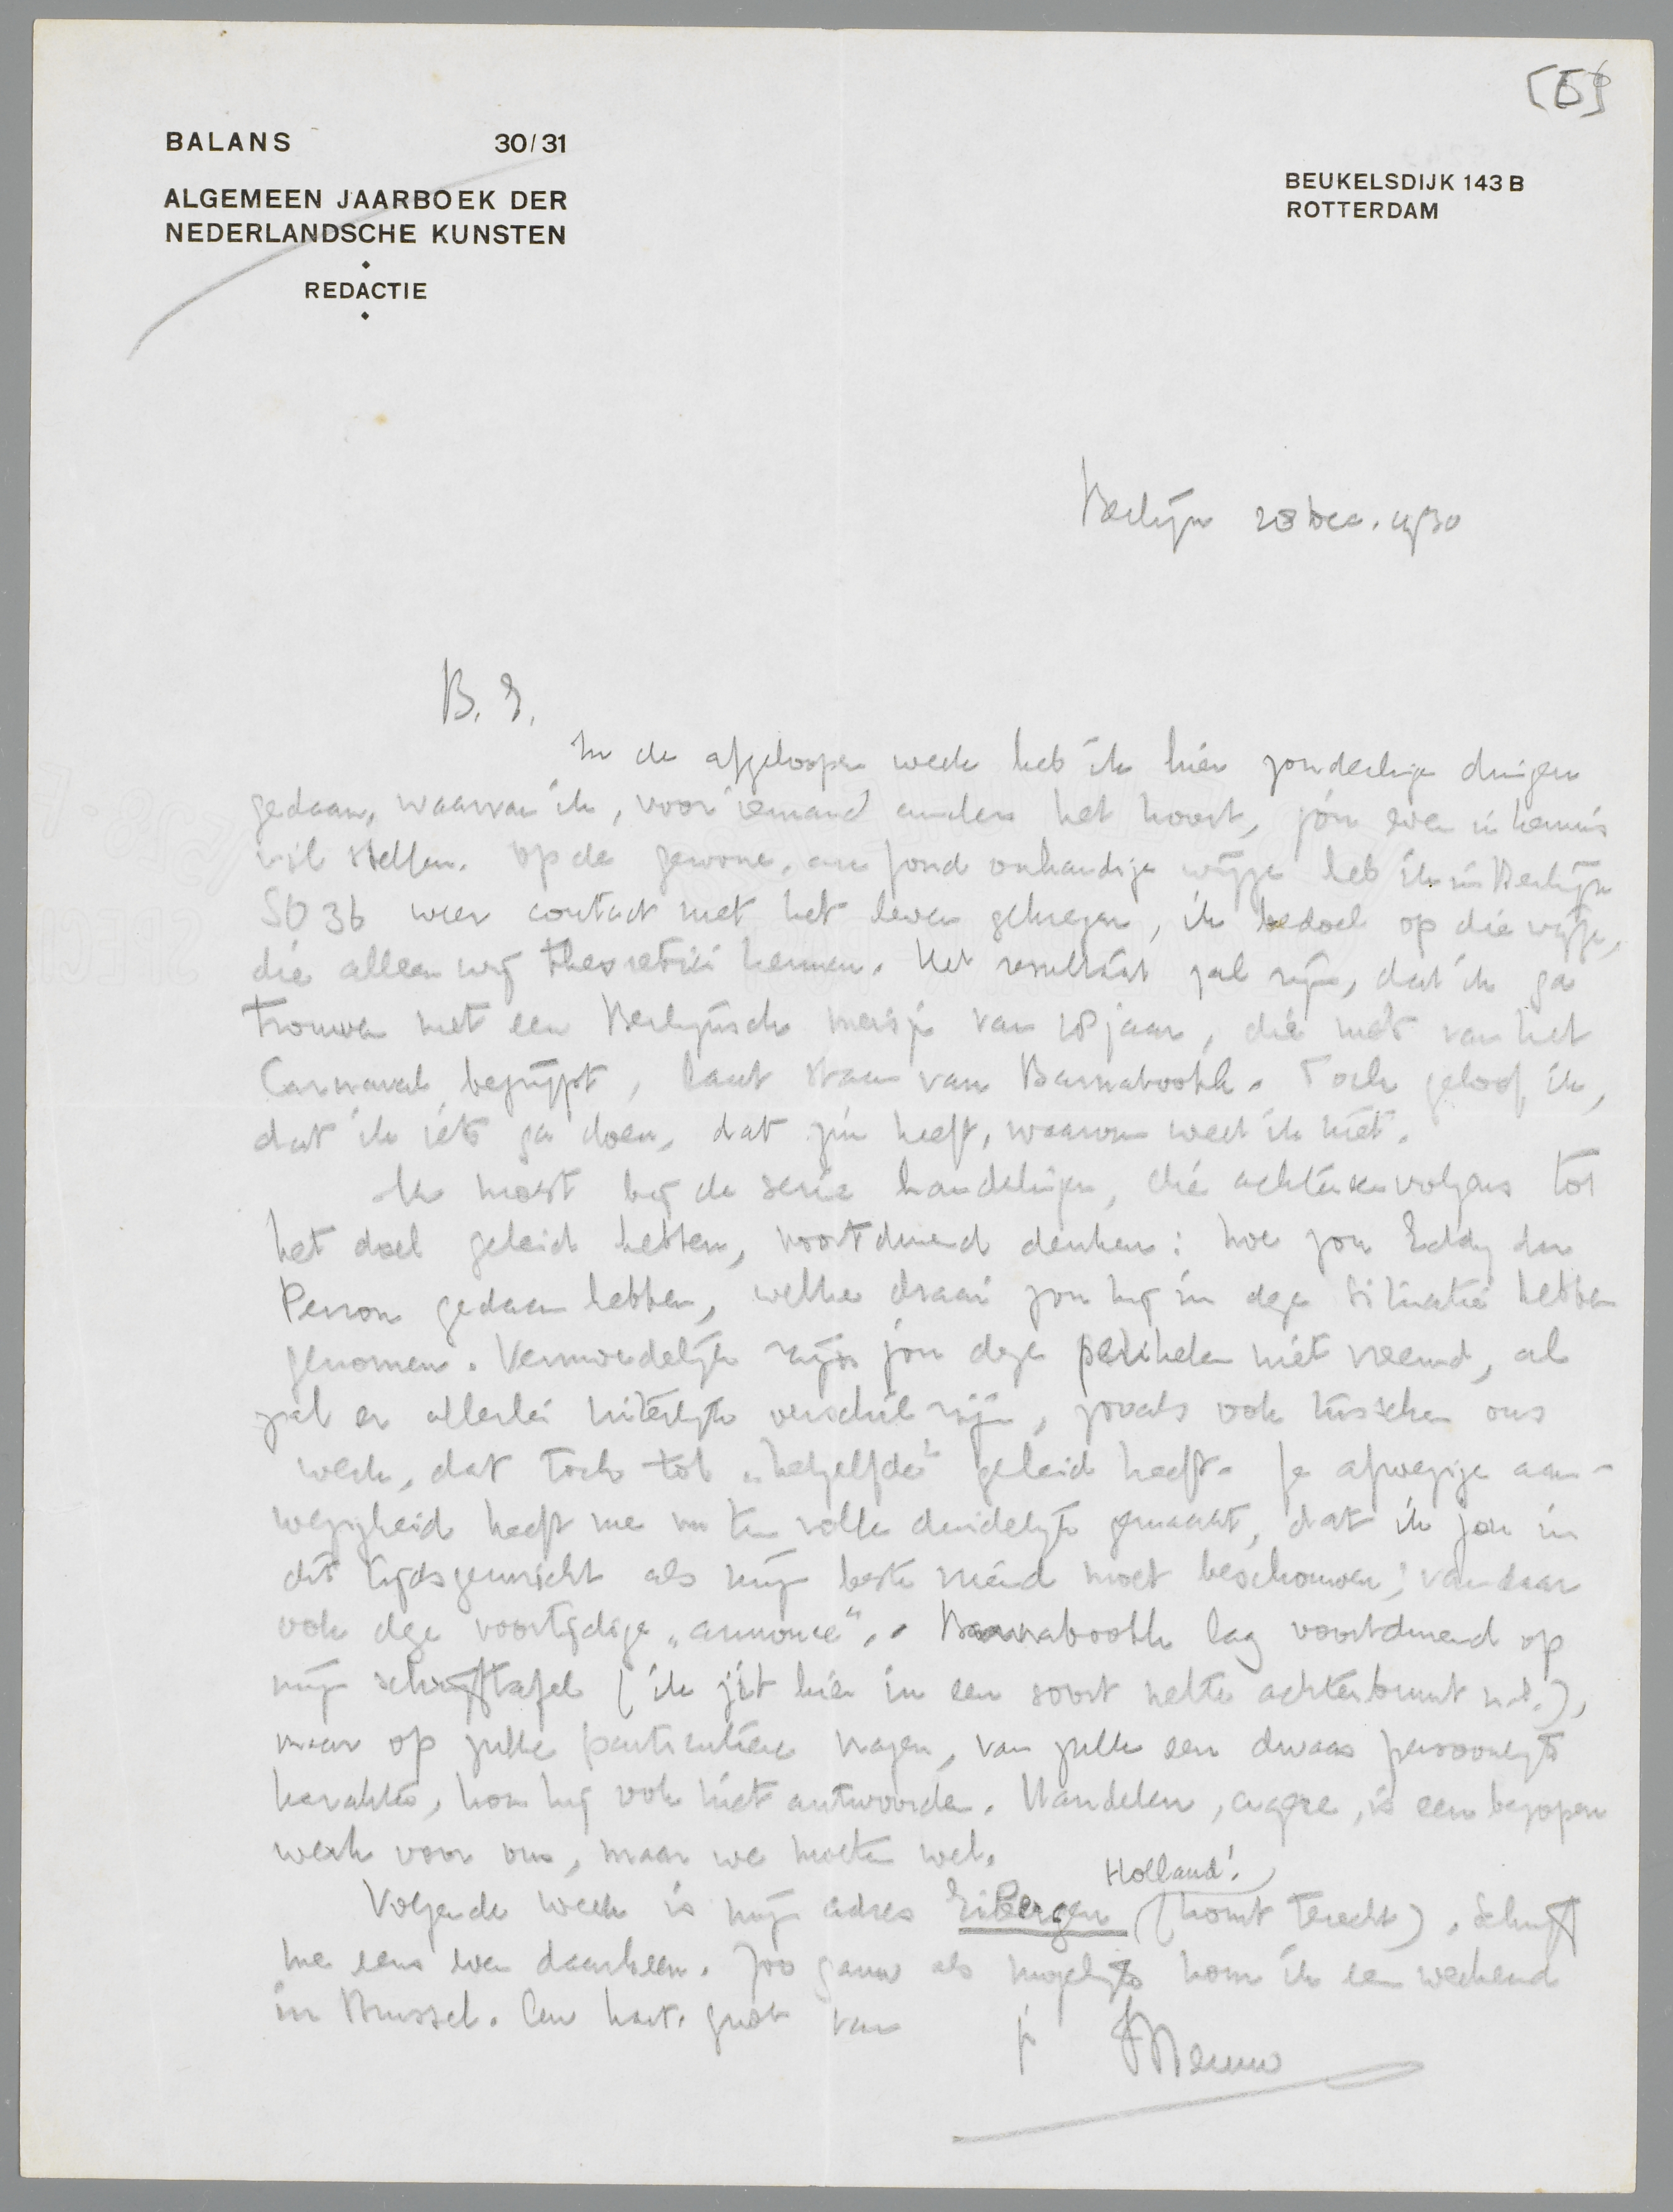 [5]
BALANS 30/31
ALGEMEEN JAARBOEK DER
NEDERLANDSCHE KUNSTEN
REDACTIE
BEUKELSDIJK 143 B
ROTTERDAM
Berlijn 28 Dec. 1930
B. E.
In de afgeloopen week heb ik hier zonderlinge dingen
gedaan, waarvan ik, voor iemand anders het hoort, jóu even in kennis
wil stellen. Op de gewone, au fond onhandige wijze heb ik in Berlijn
SO 36 weer contact met het leven gekregen, ik bedoel op die wijze,
die alleen wij theoretici kennen. Het resultaat zal zijn, dat ik ga
trouwen met een Berlijnsch meisje van 18 jaar, die niets van het
Carnaval begrijpt, laat staan van Barnabooth. Toch geloof ik,
dat ik iets ga doen, dat zin heeft, waarom weet ik niet.
Ik moest bij de serie handelingen, die achtereenvolgens tot
het doel geleid hebben, voortdurend denken: hoe zou Eddy du
Perron gedaan hebben, welke draai zou hij in deze situatie hebben
genomen. Vermoedelijk zijn jou deze perikelen niet vreemd, al
zal er allerlei uiterlijk verschil zijn, zooals ook tusschen ons
werk, dat toch tot „hetzelfde" geleid heeft. Je afwezige aan-
wezigheid heeft me nu ten volle duidelijk gemaakt, dat ik jou in
dit tijdsgewricht als mijn beste vriend moet beschouwen; vandaar
ook deze voortijdige „annonce". Barnabooth lag voortdurend op
mijn schrijftafel (ik zit hier in een soort nette achterbuurt n.l.),
maar op zulke particuliere vragen, van zulk een dwaas persoonlijk
karakter, kon hij ook niet antwoorden. Handelen, agere, is een bezopen
werk voor ons, maar we moeten wel.
Holland!
Volgende week is mijn adres Eibergen (komt terecht). Schrijf
me eens even daarheen. Zoo gauw als mogelijk kom ik een weekend
in Brussel. Een hart. groet van je Menno